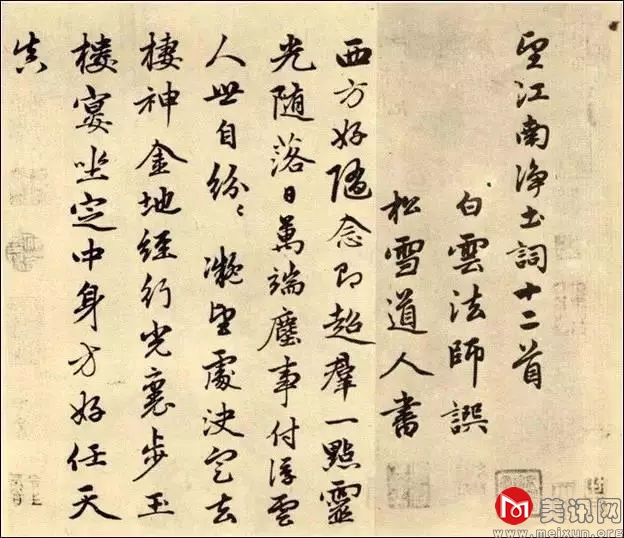 望江南净土詞十二首
白雲法師譔
松雪道人書
西方好隨念即超羣一點靈
光随落日萬端塵事付浮雲
人世自紛〻凝望處決定去
棲神金地經行光裏步玉
樓宴坐定中身方好任天
真
美讯网
www.meixun.org